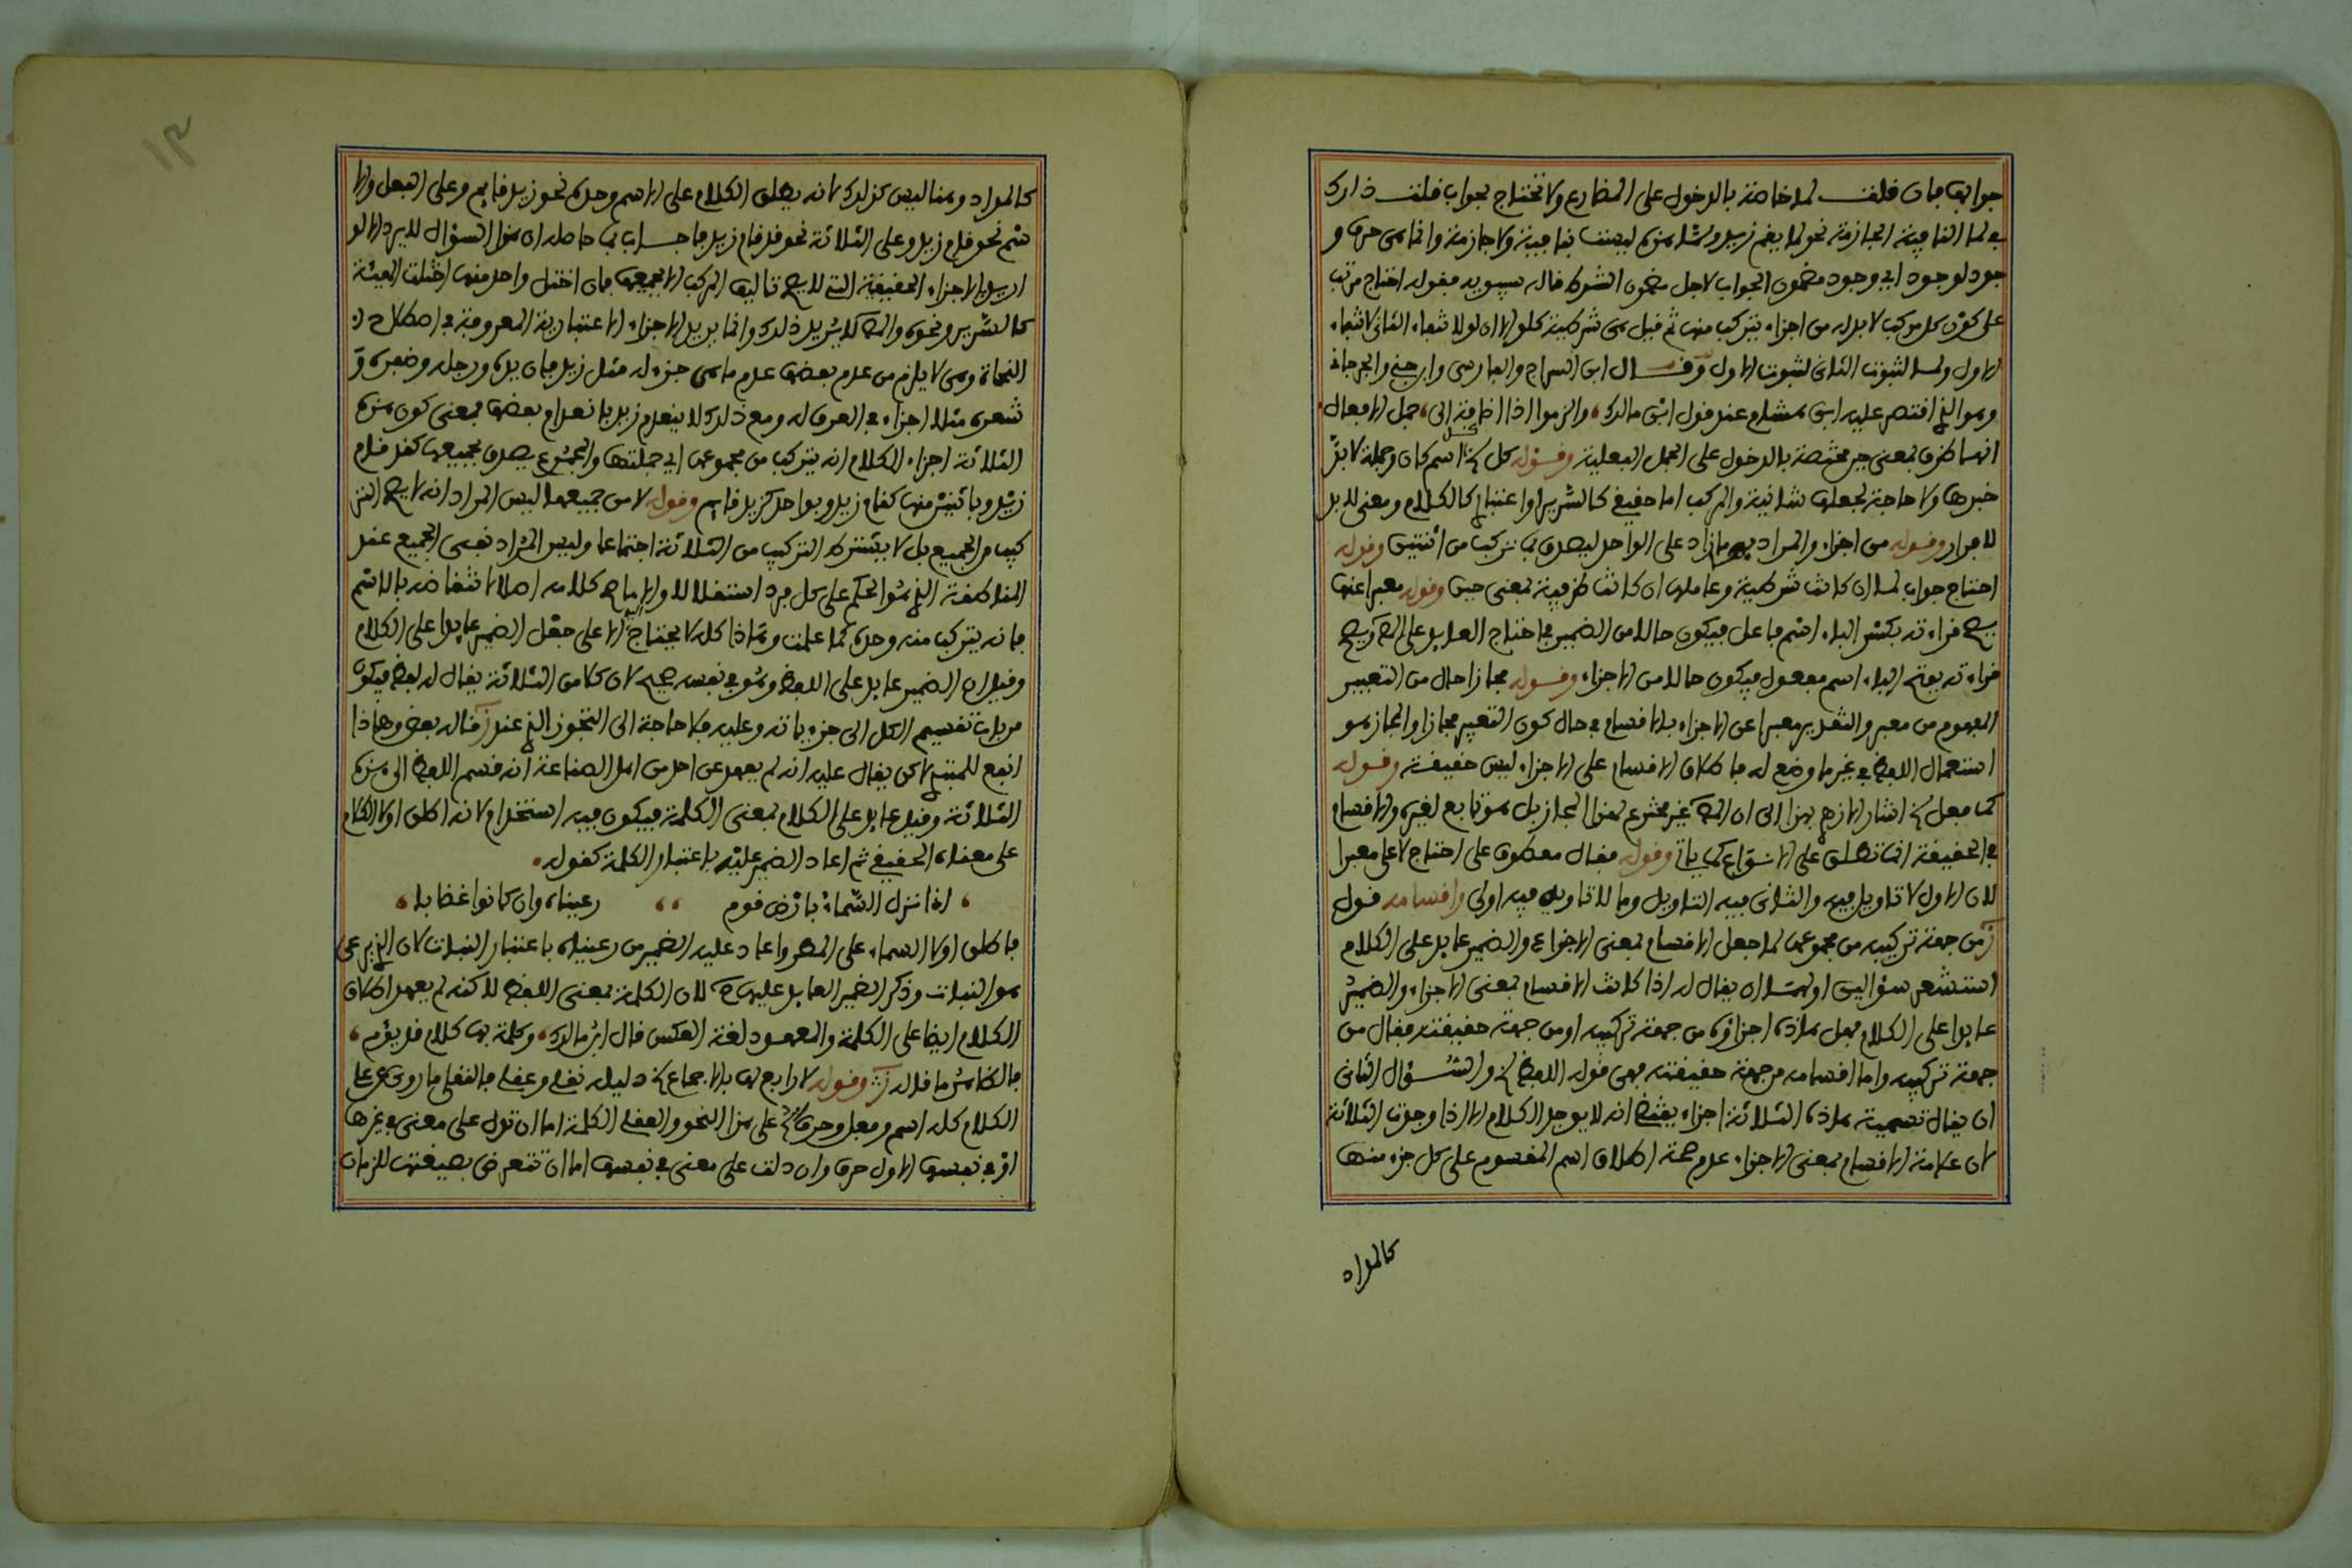 جوابها فان قلت لما خاصة بالدخول على المضارع ولا تحتاج لجواب قلت ذلك
في لما النافية الجازمة نحو لما يقم زيد ولما هذه ليست بنافية ولا جازمة وانما هي حرف و
جود لوجود اي وجود مضمون الجواب لاجل مضمون الشرط قاله سيبويه فقوله احتاج مرتب
على كون كل مركب لا بد له من اجزاء يتركب منها ثم قيل هي شرطية كلو الا ان لو لانتفاء الثاني لانتفاء
الاول ولما لثبوت الثاني لثبوت الاول وقال ابن السراج والفارسي وابن جني والجرجاني
وهو الذي اقتصر عليه ابن هشام عند قول ابن مالك، والزموا اذا اضافة الى، جمل الافعال
انها ظرف بمعنى حين مختصة بالدخول على الجمل الفعلية وقوله كل اسم كان وجملة لا بد
خبرها ولا حاجة لجعلها شانية والمركب اما حقيقي كالسرير او اعتباري كالكلام ومعنى لا بد
لا فرار وقوله من اجزاء والمراد بها ما زاد على الواحد ليصدق بما تركب من اثنين وقوله
احتاج جواب لما ان كانت شرطية وعاملها ان كانت ظرفية بمعنى حين وقوله معبرا عنها
يصح قراءته بكسر الباء اسم فاعل فيكون حالا من الضمير في احتاج العايد على المص ويصح
قراءته بفتح الباء اسم مفعول فيكون حالا من الاجزاء وقوله مجازا حال من التعبير
المفهوم من معبر والتقدير معبرا عن الاجزاء بالاقسام في حال كون التعبير مجازا والمجاز هو
استعمال اللفظ في غير ما وضع له فاطلاق الاقسام على الاجزاء ليس حقيقة وقوله
كما فعل اشار الازهري بهذا الى ان المص غير مخترع لهذا المجاز بل هو تابع لغيره والاقسام
في الحقيقة انما تطلق على الانواع كما ياتي وقوله فقال معطوف على احتاج لا على معبرا
لان الاول لا تاويل فيه والثاني فيه التاويل وما لا تاويل فيه اولى واقسامه قول
من جهة تركيبه من مجموعها لما جعل الاقسام بمعنى الاجزاء والضمير عايد على الكلام
استشعر سؤالين اولهما ان يقال له اذا كانت الاقسام بمعنى الاجزاء والضمير
عايدا على الكلام فهل هاذه اجزاؤه من جهة تركيبه او من جهة حقيقته فقال من
جهة تركيبه واما اقسامه من جهة حقيقته فهي قوله اللفظ والسؤال الثاني
ان يقال تسمية هاذه الثلاثة اجزاء يقتضي انه لا يوجد الكلام الا اذا وجدت الثلاثة
لان علامة الاقسام بمعنى الاجزاء عدم صحة اطلاق اسم المقسوم على كل جزء منها
كالمداد
١٣
كالمداد وهنا ليس كذلك لانه يطلق الكلام على الاسم وحده نحو زيد قايم وعلى الفعل والا
سم نحو قام زيد وعلى الثلاثة نحو قد قام زيد فاجاب بما حاصله ان هذا السؤال لا يرد الا لو
اريد بالاجزاء الحقيقية التي لا يصح تاليف المركب الا بجميعها فان اختل واحد منها اختلت الهيئة
كالسرير ونحوه والمص لا يريد ذلك وانما يريد الاجزاء الاعتبارية المعروفة في اصطلاح
النحاة وهي لا يلزم من عدم بعضها عدم ما هي جزء له مثل زيد فان يده ورجله وظفره و
شعره مثلا اجزاء في العرف له ومع ذلك لا ينعدم زيد بانعدام بعضها فمعنى كون هذه
الثلاثة اجزاء الكلام انه يتركب من مجموعها اي جملتها والمجموع يصدق بجميعها كقد قام
زيد وباثنين منها كقام زيد وبواحد كزيد قايم وقوله لا من جميعها ليس المراد انه لا يصح التر
كيب من الجميع بل لا يشترط التركيب من الثلاثة اجتماعا وليس المراد نفي الجميع عند
المناطقة الذي هو الحكم على كل فرد استقلالا والا فاصح كلامه اصلا لانتقاضه بالاسم
فانه يتركب منه وحده كما علمت وهذا كله لا يحتاج اليه الا على جعل الضمير عايدا على الكلام
وقيل ان الضمير عايد على اللفظ وهو في نفسه صحيح لان كلا من الثلاثة يقال له لفظ فيكون
من باب تقسيم الكل الى جزءياته وعليه فلا حاجة الى التجوز الذي عند قال بعض وهاذا
انفع للمبتدي لكن يقال عليه انه لم يعهد عن احد من اهل الصناعة انه قسم اللفظ الى هذه
الثلاثة وقيل عايد على الكلام بمعنى الكلمة فيكون فيه استخدام لانه اطلق اولا الكلام
على معناه الحقيقي ثم اعاد الضمير عليه باعتبار الكلمة كقوله
اذا نزل السماء بارض قوم رعيناه وان كانوا غضابا
فاطلق اولا السماء على المطر واعاد عليه الضمير من رعيناه باعتبار النبات لان الذي يرعى
هو النبات وذكر الضمير العايد عليها لان الكلمة بمعنى اللفظ لاكنه لم يعهد اطلاق
الكلام ايضا على الكلمة والمعهود لغة العكس قال ابن مالك، وكلمة بها كلام قد يؤم،
فالظاهر ما قاله وقوله لا رابع لها بالاجماع دليله نقلي وعقلي فالنقلي ما روي عن علي
الكلام كله اسم وفعل وحرف على هذا النحو والعقلي الكلمة اما ان تدل على معنى في غيرها
او في نفسها الاول حرف وان دلت على معنى في نفسها اما ان تتعرض بصيغتها للزمان